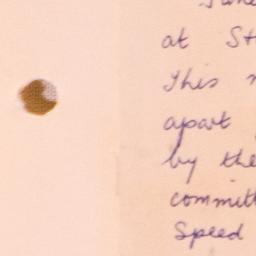 at St
This
apart
by the
committ
Speed